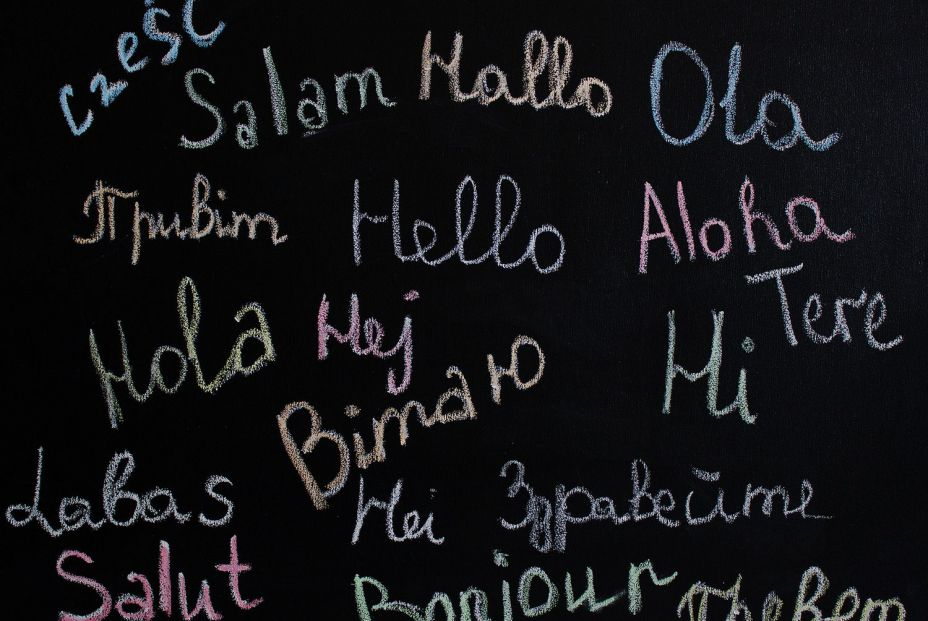 Cześć
Salam Hallo Ola
Привіт Hello Aloha
Tere
Hola Hej Hi
Вітаю
Labas Hei Здравейте
Salut Bonjour Привет